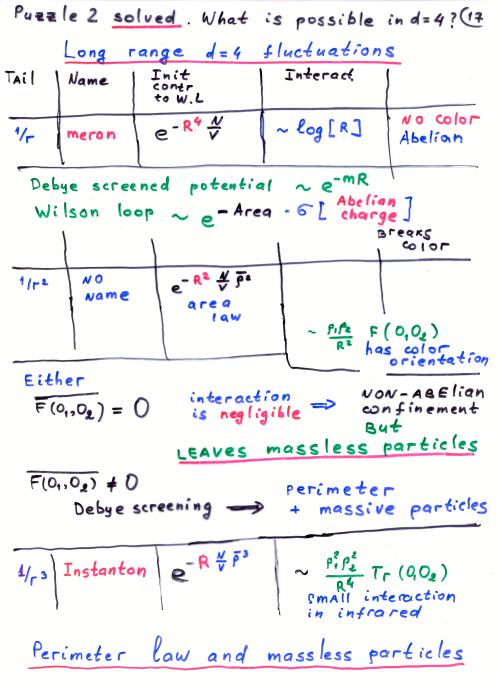 Puzzle 2 solved. What is possible in d=4? 17
Long range d=4 fluctuations
TAil Name Init contr to W.L Interact.
1/r meron e^{-R^4 N/V} ~ log[R] NO color Abelian
Debye screened potential ~ e^{-mR}
Wilson loop ~ e^{-Area · σ[Abelian charge]}
Breaks color
1/r² NO Name e^{-R² N/V ρ̄²} area law
~ ρ₁ρ₂/R² F(O₁O₂)
has color
orientation
Either
F(O₁,O₂) = 0 interaction is negligible ⇒ NON-ABElian confinement
But
LEAVES massless particles
F(O₁,O₂) ≠ 0
Debye screening → perimeter
+ massive particles
1/r³ Instanton e^{-R N/V ρ̄³} ~ ρ₁²ρ₂²/R⁴ Tr(O₁O₂)
small interaction
in infrared
Perimeter law and massless particles